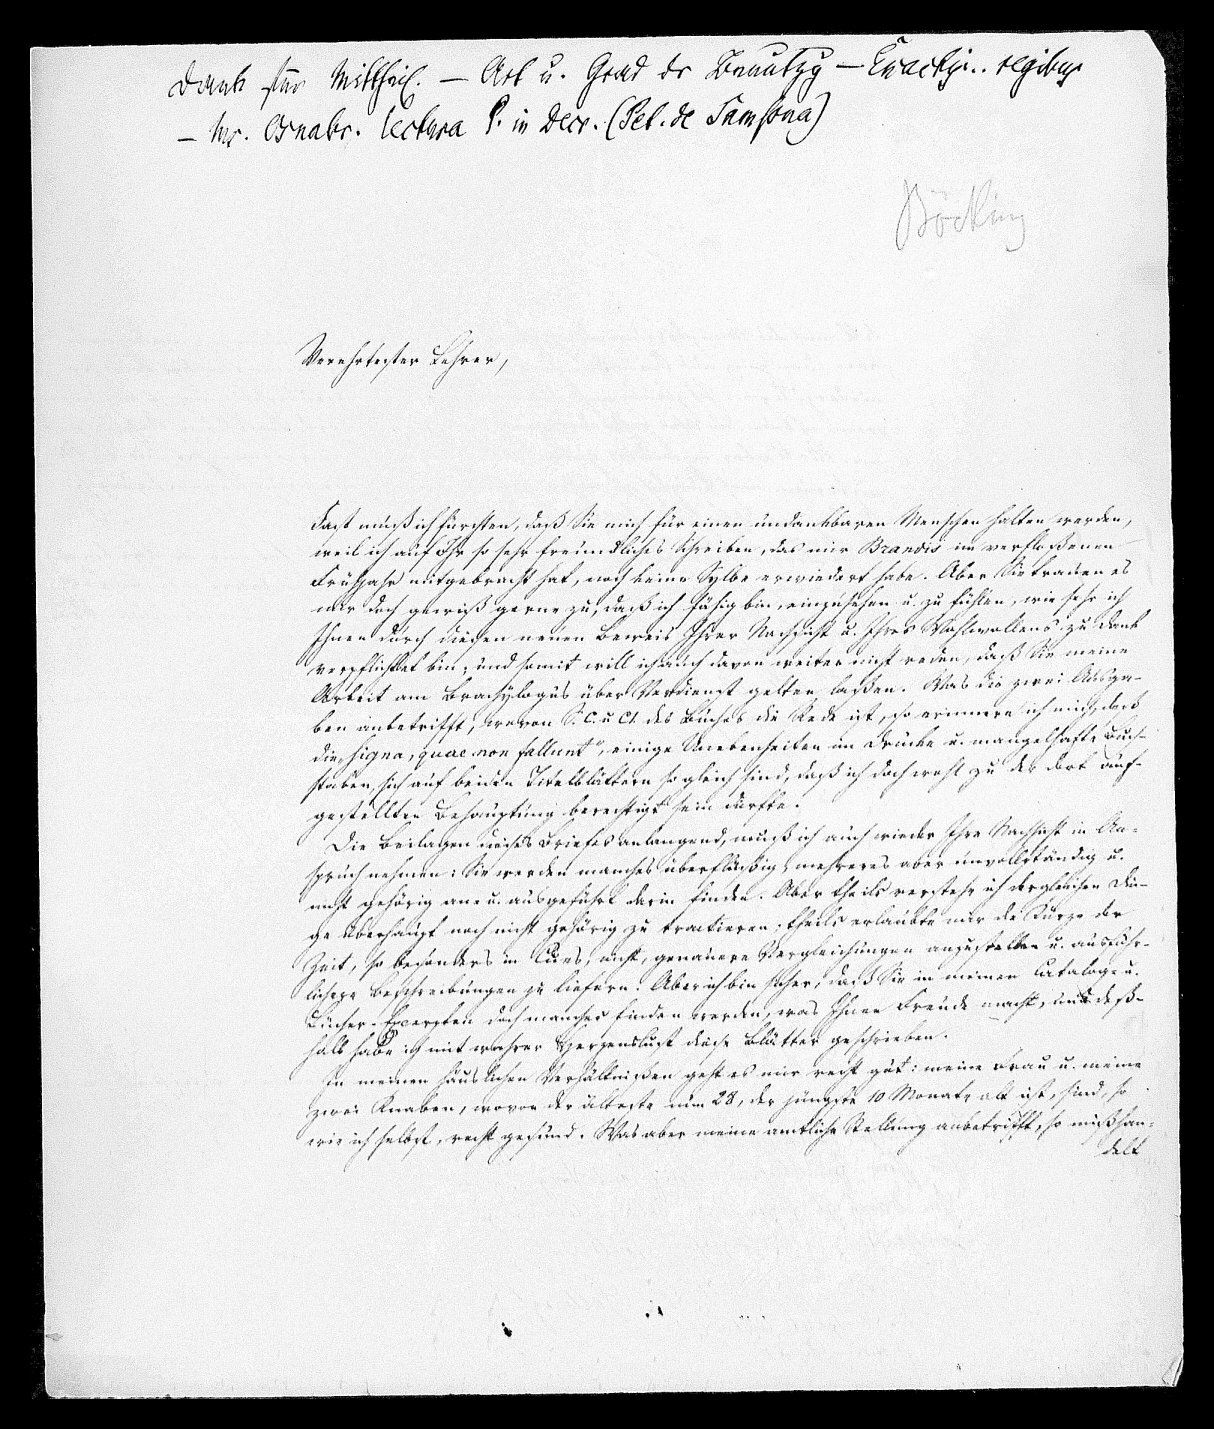 Dank für Mittheil. — Art u. Grad dr Benutzg — Exactis.. regibus
— Ms. Osnabr. lectura P. in Decr. (Pet. de Samsona)
Böcking
Verehrtester Lehrer,
Fast muß ich fürchten, daß Sie mich für einen undankbaren Menschen halten werden,
weil ich auf Ihr so sehr freundliches Schreiben, das mir Brandis im verfloßenen
Frühjahr mitgebracht hat, noch keine Sylbe erwiedert habe. Aber Sie trauen es
mir doch gewiß gerne zu, daß ich fähig bin, einzusehen u. zu fühlen, wie sehr ich
Ihnen durch diesen neuen Beweis Ihrer Nachsicht u. Ihres Wohlwollens zu Dank
verpflichtet bin; und somit will ich auch davon weiter nicht reden, daß Sie meine
Arbeit am Brachylogus über Verdienst gelten laßen. Was die zwei Ausga-
ben anbetrifft, wovon S. C. u CI. des Buches die Rede ist, so erinnere ich mich, daß
die „signa, quae non fallunt", einige Unebenheiten im Drucke u. mangelhafte Buch-
staben, sich auf beiden Titelblättern so gleich sind, daß ich doch wohl zu der dort auf-
gestellten Behauptung berechtigt sein durfte.
Die Beilagen dieses Briefes anlangend, muß ich auch wieder Ihre Nachsicht in An-
spruch nehmen: Sie werden manches überflüßig, mehreres aber unvollständig u.
nicht gehörig ane u. ausgeführt darin finden. Aber theils verstehe ich dergleichen Din-
ge überhaupt noch nicht gehörig zu tractieren; theils erlaubte mir die Kürze der
Zeit, so besonders in Cues, nicht, genauere Vergleichungen anzustellen u. ausführ-
lichere Beschreibungen zu liefern. Aber ich bin sicher, daß Sie in meinem Cataloge u.
Bücher-Excerpten doch manches finden werden, was Ihnen Freude macht, und deß-
halb habe ich mit wahrer Herzenslust diese Blätter geschrieben.
In meinen häuslichen Verhältnißen geht es mir recht gut: meine Frau u. meine
zwei Knaben, wovon der älteste nun 28, der jüngste 10 Monate alt ist, sind, so
wie ich selbst, recht gesund. Was aber meine amtliche Stellung anbetrifft, so mißhan-
delt